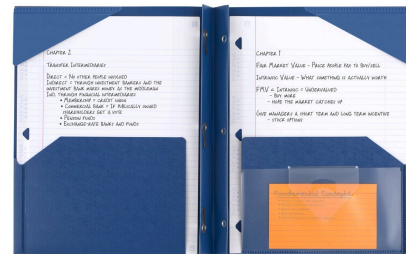 Chapter 2
Transfer Intermediaries
Direct = No other people involved
Indirect = Through investment bankers and the
investment bank makes money as the middleman
Ind. Through financial intermediaries
• Membership = credit union
• Commercial bank = if publically owned
shareholders get a vote
• Pension funds
• Exchange-rate banks and funds
Chapter 1
Fair Market Value - Price people pay to buy/sell
Intrinsic Value - What something is actually worth
FMV < Intrinsic = Undervalued
- Buy more
- Hope the market catches up
Give managers a short term and long term incentive
- Stock options